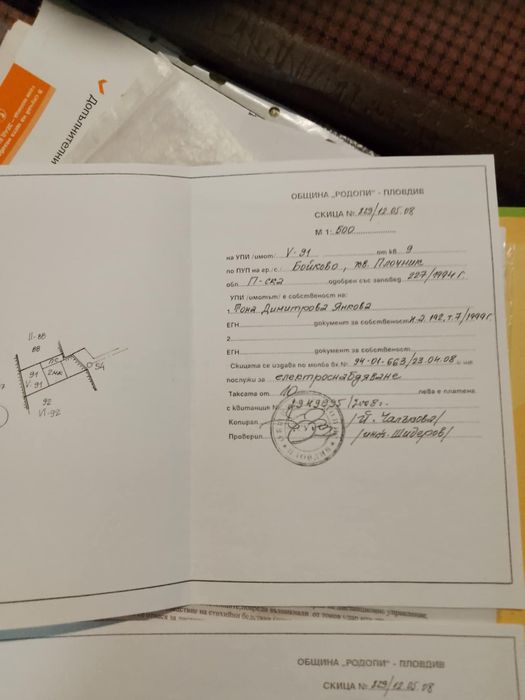 Допълнителни
ОБЩИНА „РОДОПИ" - ПЛОВДИВ
СКИЦА №: 829/12.05.08
М 1: 500
на УПИ /имот/: V-91 от кв. 9
по ПУП на гр./с./ Бойково, кв. Плочник
обл. П-ска одобрен със заповед 227/1994г.
УПИ /имотът/ е собственост на:
1. Фона Димитрова Янкова
ЕГН документ за собственост н.а. 192, т.7/1999г.
2.
ЕГН документ за собственост
Скицата се издава по молба вх.№ 94-01-663/23.04.08 г. и ще
послужи за електроснабдяване
Таксата от 10 лева е платена
с квитанция № /2008г.
Копирал: /Й. Чалъкова/
Проверил: /инж. Шидеров/
II-88
88
91
V-91
2МЖ
84
92
VI-92
ОБЩИНА „РОДОПИ" - ПЛОВДИВ
СКИЦА №: 829/12.05.08